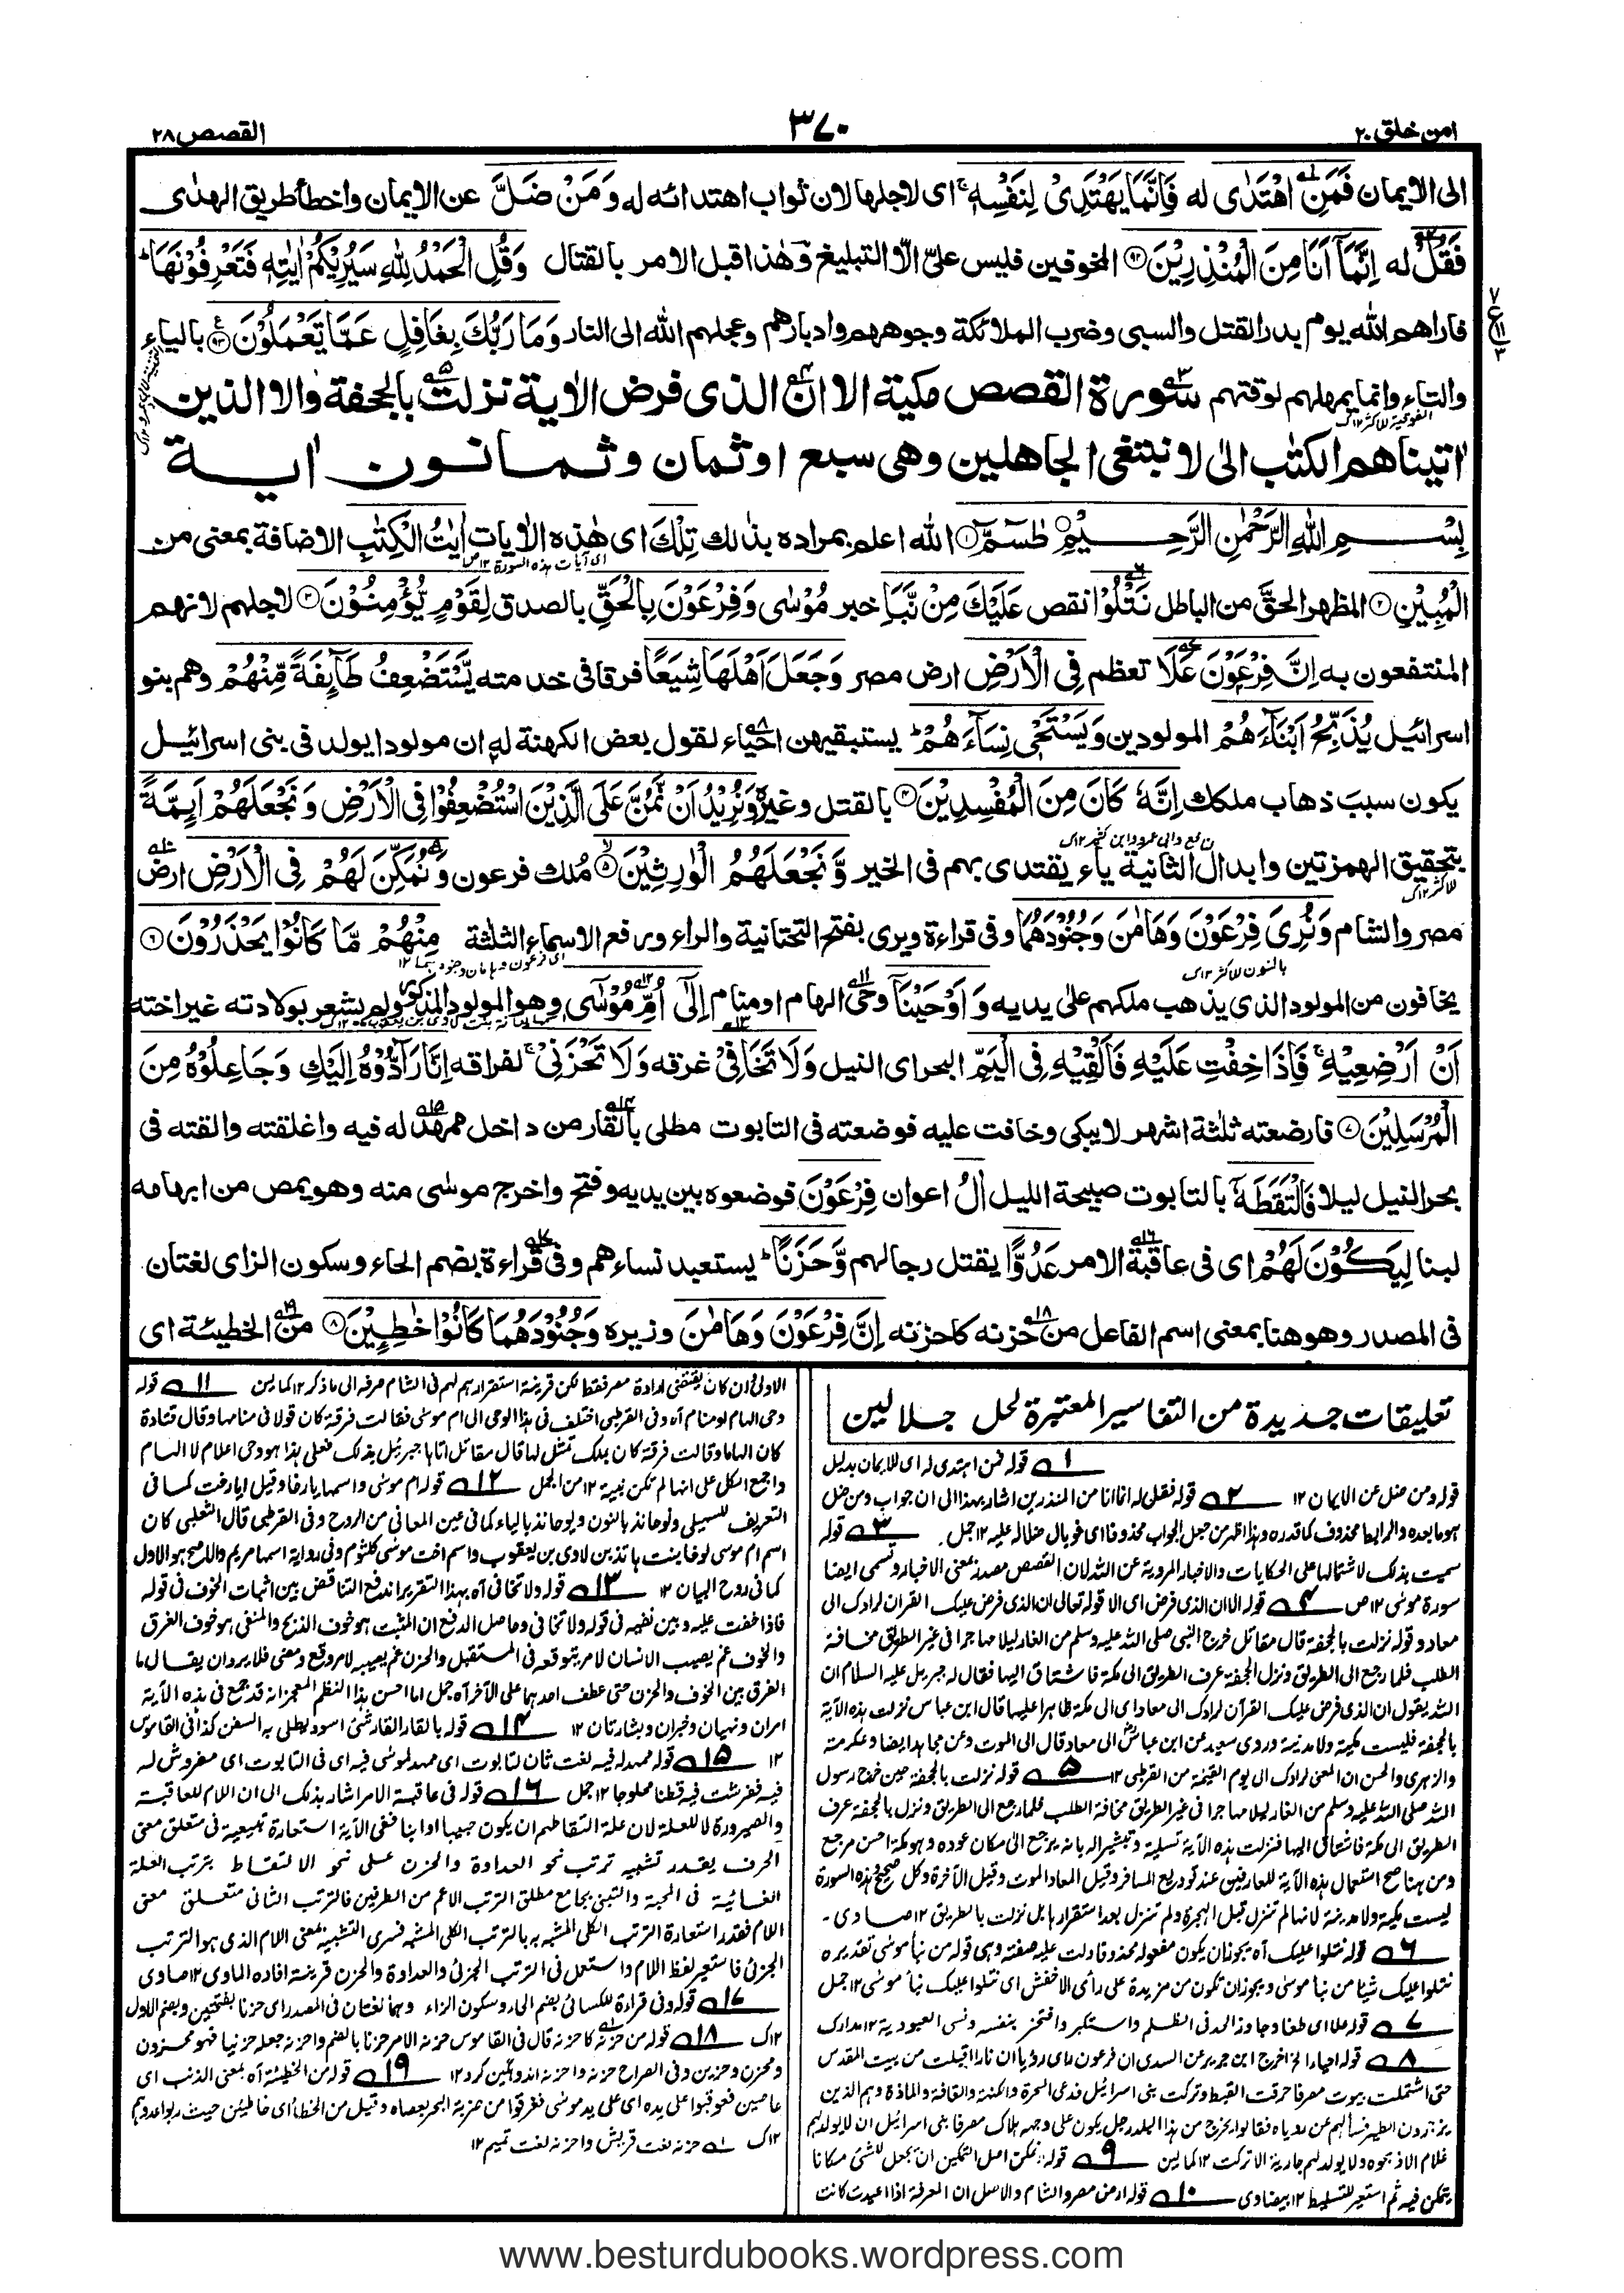 امن خلق ٢٠
٣٧٠
القصص ٢٨
الى الايمان فَمَنِ اهْتَدٰى له فَاِنَّمَا يَهْتَدِىْ لِنَفْسِهٖ ج اى لاجلها لان ثواب اهتدائه له وَمَنْ ضَلَّ عن الايمان واخطأ طريق الهدٰى
فَقُلْ له اِنَّمَآ اَنَا مِنَ الْمُنْذِرِيْنَ ۝٩٢ المخوفين فليس علىّ الّا التبليغ وهٰذا قبل الامر بالقتال وَقُلِ الْحَمْدُ لِلّٰهِ سَيُرِيْكُمْ اٰيٰتِهٖ فَتَعْرِفُوْنَهَا ط
فاراهم الله يوم بدر القتل والسبى وضرب الملائكة وجوههم وادبارهم وعجلهم الله الى النار وَمَا رَبُّكَ بِغَافِلٍ عَمَّا تَعْمَلُوْنَ ۝٩٣ بالياء
والتاء وانما يمهلهم لوقتهم سورة القصص مكية الا ان الذى فرض الاٰية نزلت بالجحفة والا الذين
اٰتيناهم الكتٰب الى لا نبتغى الجاهلين وهى سبع او ثمان وثمانون اٰية
بِسْمِ اللهِ الرَّحْمٰنِ الرَّحِيْمِ ۝ طٰسٓمّٓ ۝١ الله اعلم بمراده بذٰلك تِلْكَ اى هٰذه الاٰيات اٰيٰتُ الْكِتٰبِ الاضافة بمعنى من
الْمُبِيْنِ ۝٢ المظهر الحقَّ من الباطل نَتْلُوْا نقص عَلَيْكَ مِنْ نَّبَاِ خبر مُوْسٰى وَفِرْعَوْنَ بِالْحَقِّ بالصدق لِقَوْمٍ يُّؤْمِنُوْنَ ۝٣ لاجلهم لانهم
المنتفعون به اِنَّ فِرْعَوْنَ عَلَا تعظم فِى الْاَرْضِ ارض مصر وَجَعَلَ اَهْلَهَا شِيَعًا فرقا فى خدمته يَّسْتَضْعِفُ طَآئِفَةً مِّنْهُمْ وهم بنو
اسرائيل يُذَبِّحُ اَبْنَآءَهُمْ المولودين وَيَسْتَحْىٖ نِسَآءَهُمْ ط يستبقيهن احياء لقول بعض الكهنة له ان مولودا يولد فى بنى اسرائيل
يكون سببَ ذهاب ملكك اِنَّهٗ كَانَ مِنَ الْمُفْسِدِيْنَ ۝٤ بالقتل وغيره وَنُرِيْدُ اَنْ نَّمُنَّ عَلَى الَّذِيْنَ اسْتُضْعِفُوْا فِى الْاَرْضِ وَنَجْعَلَهُمْ اَئِمَّةً
بتحقيق الهمزتين وابدال الثانية ياء يقتدى بهم فى الخير وَّنَجْعَلَهُمُ الْوٰرِثِيْنَ ۝٥ مُلك فرعون وَنُمَكِّنَ لَهُمْ فِى الْاَرْضِ ارض
مصر والشام وَنُرِىَ فِرْعَوْنَ وَهَامٰنَ وَجُنُوْدَهُمَا وفى قراءة ويرى بفتح التحتانية والراء ورفع الاسماء الثلثة مِنْهُمْ مَّا كَانُوْا يَحْذَرُوْنَ ۝٦
يخافون من المولود الذى يذهب ملكهم على يديه وَ اَوْحَيْنَآ وحى الهام او منام اِلٰٓى اُمِّ مُوْسٰى وهو المولود المذكور ولم يشعر بولادته غير اخته
اَنْ اَرْضِعِيْهِ ج فَاِذَا خِفْتِ عَلَيْهِ فَاَلْقِيْهِ فِى الْيَمِّ البحر اى النيل وَلَا تَخَافِىْ غرقه وَلَا تَحْزَنِىْ ج لفراقه اِنَّا رَآدُّوْهُ اِلَيْكِ وَجَاعِلُوْهُ مِنَ
الْمُرْسَلِيْنَ ۝٧ فارضعته ثلثة اشهر لا يبكى وخافت عليه فوضعته فى التابوت مطلى بالقار من داخل ممهد له فيه واغلقته والقته فى
بحر النيل ليلا فَالْتَقَطَهٗٓ بالتابوت صبيحة الليل اٰلُ اعوان فِرْعَوْنَ فوضعوه بين يديه وفتح واخرج موسٰى منه وهو يمص من ابهامه
لبنا لِيَكُوْنَ لَهُمْ اى فى عاقبة الامر عَدُوًّا يقتل رجالهم وَّحَزَنًا ط يستعبد نساءهم وفى قراءة بضم الحاء وسكون الزاى لغتان
فى المصدر وهو هنا بمعنى اسم الفاعل من حزنه كاحزنه اِنَّ فِرْعَوْنَ وَهَامٰنَ وزيره وَجُنُوْدَهُمَا كَانُوْا خٰطِـِٕيْنَ ۝٨ من الخطيئة اى
تعليقات جديدة من التفاسير المعتبرة لحل جلالين
١ قوله فمن اهتدى له اى للايمان بدليل
قوله ومن ضل عن الايمان ١٢ ٢ قوله فقل له انما انا من المنذرين اشار بهذا الى ان جواب ومن ضل
هو ما بعده والرابط محذوف كما قدره وهذا اظهر من جعل الجواب محذوفا اى فوبال ضلاله عليه ١٢ جمل ٣ قوله
سميت بذلك لاشتمالها على الحكايات والاخبار المروية عن الله لان القصص مصدر بمعنى الاخبار وتسمى ايضا
سورة موسى ١٢ ص ٤ قوله الا ان الذى فرض اى الا قوله تعالى ان الذى فرض عليك القرآن لرادك الى
معاد وقوله نزلت بالجحفة قال مقاتل خرج النبى صلى الله عليه وسلم من الغار ليلا مهاجرا فى غير الطريق مخافة
الطلب فلما رجع الى الطريق ونزل الجحفة عرف الطريق الى مكة فاشتاق اليها فقال له جبريل عليه السلام ان
الله يقول ان الذى فرض عليك القرآن لرادك الى معاد اى الى مكة ظاهرا عليها قال ابن عباس نزلت هذه الآية
بالجحفة فليست مكية ولا مدنية وروى سعيد عن ابن عباس الى معاد قال الى الموت وعن مجاهد ايضا وعكرمة
والزهرى والحسن ان المعنى لرادك الى يوم القيمة من القرطبى ١٢ ٥ قوله نزلت بالجحفة حين خرج رسول
الله صلى الله عليه وسلم من الغار ليلا مهاجرا فى غير الطريق مخافة الطلب فلما رجع الى الطريق ونزل بالجحفة عرف
الطريق الى مكة فاشتاق اليها فنزلت هذه الآية تسلية وتبشيرا له بانه يرجع الى مكان عوده وهو مكة احسن مرجع
ومن هنا صح استعمال هذه الآية للعارفين عند توديع المسافر وقيل المعاد الموت وقيل الآخرة وكل صحيح وهذه السورة
ليست مكية ولا مدنية لانها لم تنزل قبل الهجرة ولم تنزل بعد استقراره بل نزلت بالطريق ١٢ صاوى -
٦ قوله نتلوا عليك آه يجوز ان يكون مفعوله محذوفا دلت عليه صفته وهى قوله من نبأ موسى تقديره
نتلوا عليك شيئا من نبأ موسى ويجوز ان تكون من مزيدة على رأى الاخفش اى نتلوا عليك نبأ موسى ١٢ جمل
٧ قوله علا اى طغا وجاوز الحد فى الظلم واستكبر وافتخر بنفسه ونسى العبودية ١٢ مدارك
٨ قوله احياء الخ اخرج ابن جرير عن السدى ان فرعون رأى رؤيا ان نارا اقبلت من بيت المقدس
حتى اشتملت بيوت مصر فاحرقت القبط وتركت بنى اسرائيل فدعى السحرة والكهنة والقافة والحاذة وهم الذين
يزجرون الطير فسألهم عن رؤياه فقالوا يخرج من هذا البلد رجل يكون على وجهه هلاك مصر فامر ببنى اسرائيل ان لا يولد لهم
غلام الا ذبحوه ولا يولد لهم جارية الا تركت ١٢ كمالين ٩ قوله نمكن اصل التمكين ان يجعل للشئ مكانا
يتمكن فيه ثم استعير للتسليط ١٢ بيضاوى ١٠ قوله ارض مصر والشام والاصل ان المعرفة اذا اعيدت كانت
الاولى وان كان يقتضى ارادة مصر فقط لكن قرينة استقرارهم لهم فى الشام صرفه الى ما ذكر ١٢ كمالين ١١ قوله
وحى الهام او منام آه وفى القرطبى اختلف فى هذا الوحى الى ام موسى فقالت فرقة كان قولا فى منامها وقال قتادة
كان الهاما وقالت فرقة كان بملك تمثل لها قال مقاتل اتاها جبريل بذلك فعلى هذا هو وحى اعلام لا الهام
واجمع الكل على انها لم تكن نبية ١٢ من الجمل ١٢ قوله ام موسى واسمها يارخا وقيل ايارخت كما فى
التعريف للسهيلى ونوحانذ بالنون ويوحانذ بالياء كما فى عين المعانى من الروح وفى القرطبى قال الثعلبى كان
اسم ام موسى لوخا بنت هاند بن لاوى بن يعقوب واسم اخت موسى كلثوم وفى رواية اسمها مريم والاصح هو الاول
كما فى روح البيان ١٢ ١٣ قوله ولا تخافى آه بهذا التقرير اندفع التناقض بين اثبات الخوف فى قوله
فاذا خفت عليه وبين نفيه فى قوله ولا تخافى وحاصل الدفع ان المثبت هو خوف الذبح والمنفى هو خوف الغرق
والخوف غم يصيب الانسان لامر يتوقعه فى المستقبل والحزن غم يصيبه لامر وقع ومضى فلا يرد ان يقال ما
الفرق بين الخوف والحزن حتى عطف احدهما على الآخر آه جمل اما احسن هذا النظم المعجز انه قد جمع فى هذه الآية
امران ونهيان وخبران وبشارتان ١٢ ١٤ قوله بالقار القار شئ اسود يطلى به السفن كذا فى القاموس
١٢ ١٥ قوله ممهد له فيه نعت ثان لتابوت اى ممهد لموسى فيه اى فى التابوت اى مفروش له
فيه ففرشت فيه قطنا محلوجا ١٢ جمل ١٦ قوله فى عاقبة الامر اشار بذلك الى ان اللام للعاقبة
والصيرورة لا للعلة لان علة التقاطهم ان يكون حبيبا او ابنا ففى الآية استعارة تبعية فى متعلق معنى
الحرف يقدر تشبيه ترتب نحو العداوة والحزن على نحو الالتقاط بترتب العلة
الغائية فى المحبة والتبنى بجامع مطلق الترتب الاعم من الطرفين فالترتب الثانى متعلق معنى
اللام فقدر استعارة الترتب الكلى المشبه به بالترتب الكلى المشبه فسرى التشبيه لمعنى اللام الذى هو الترتب
الجزئى فاستعير لفظ اللام واستعمل فى الترتب الجزئى والعداوة والحزن قرينة افاده الملوى ١٢ صاوى
١٧ قوله وفى قراءة للكسائى بضم الحاء وسكون الزاء وهما لغتان فى المصدر اى حزنا بفتحتين وبضم الاول
١٢ ك ١٨ قوله من حزنه كاحزنه قال فى القاموس حزنه الامر حزنا بالضم واحزنه جعله حزنيا فهو محزون
ومحزن وحزين وفى الصراح حزنه واحزنه اندوهگين كرد ١٢ ١٩ قوله من الخطيئة آه بمعنى الذنب اى
عاصين فعوقبوا على يده اى على يد موسى فغرقوا من ضربة البحر بعصاه وقيل من الخطأ اى خاطئين حيث ربوا عدوهم
١٢ ك حزنه لغت قريش واحزنه لغت تميم ١٢
www.besturdubooks.wordpress.com